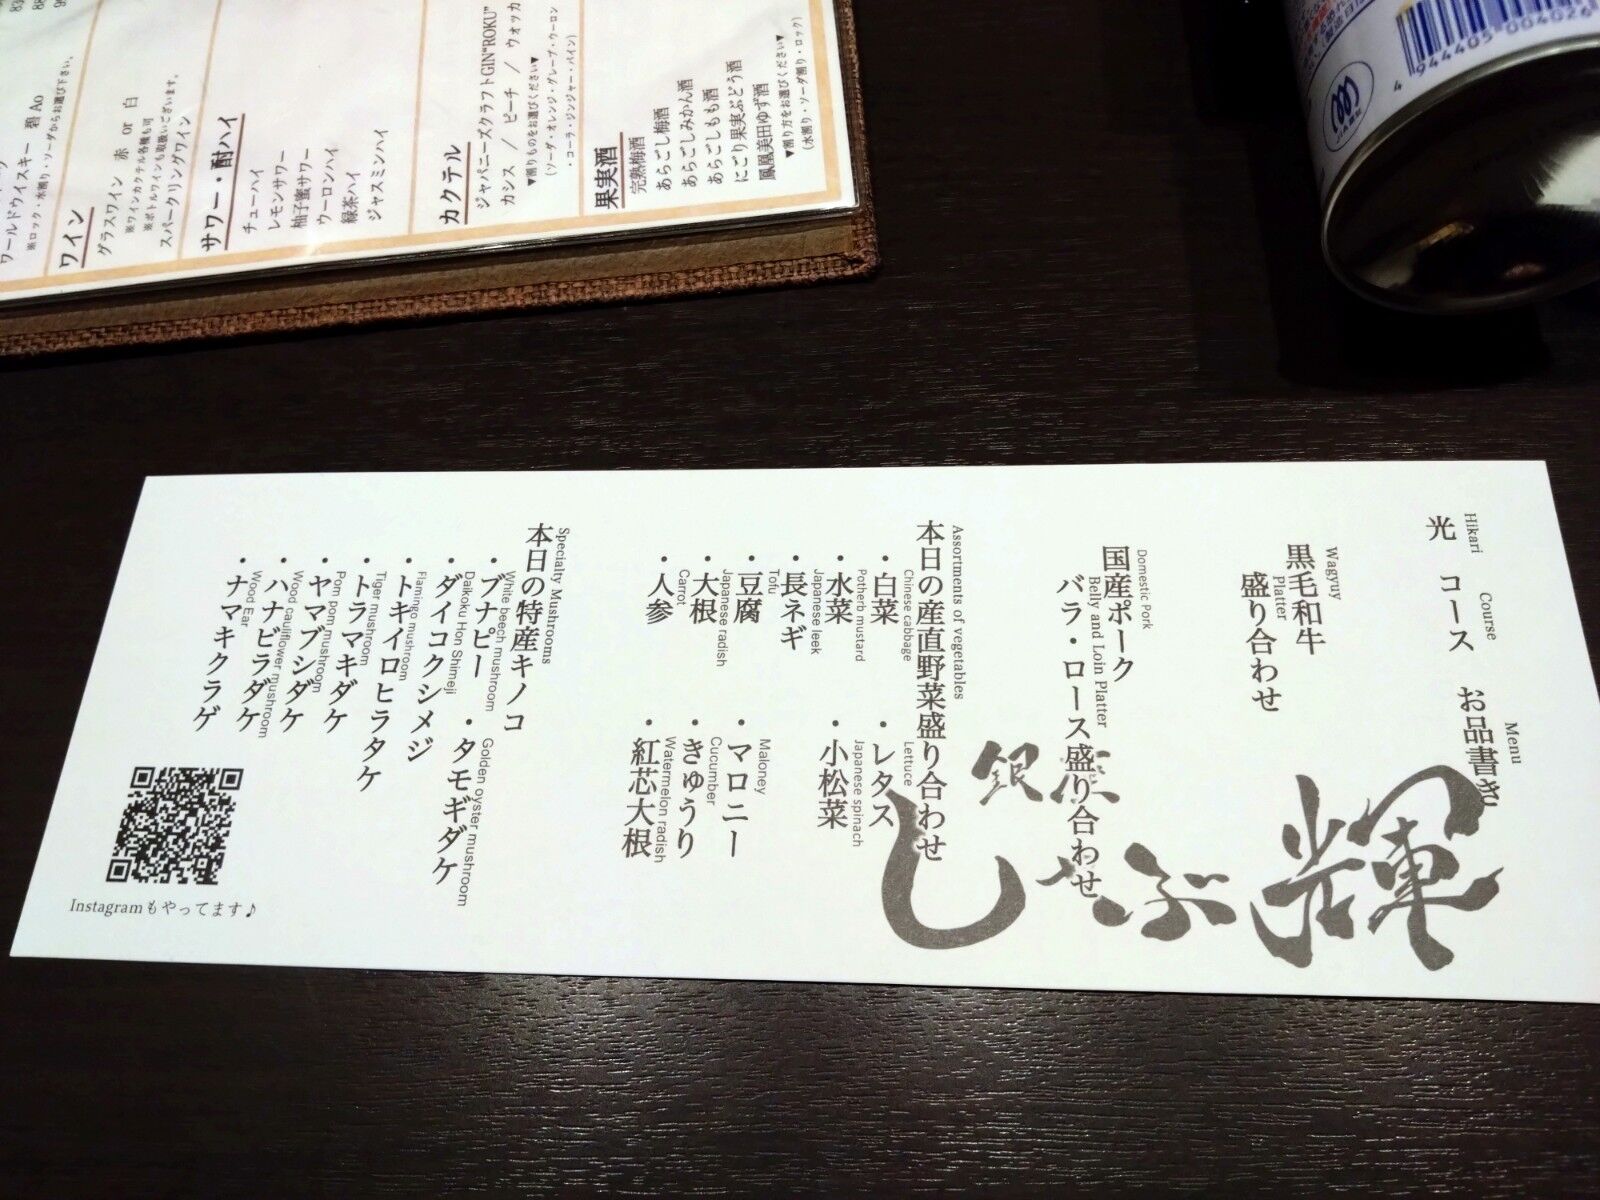 ワイン
グラスワイン 赤 or 白
※ワインカクテル各種も可
※ボトルワインも取扱いございます。
スパークリングワイン
サワー・酎ハイ
チューハイ
レモンサワー
柚子蜜サワー
ウーロンハイ
緑茶ハイ
ジャスミンハイ
カクテル
ジャパニーズクラフトGIN"ROKU"
カシス / ピーチ / ウォッカ
▼割りものをお選びください▼
(ソーダ・オレンジ・グレープ・ウーロン
・コーラ・ジンジャー・パイン)
果実酒
完熟梅酒
あらごし梅酒
あらごしみかん酒
あらごしもも酒
にごり果実ぶどう酒
鳳凰美田ゆず酒
▼割り方をお選びください▼
(水割り・ソーダ割り・ロック)
4 944405 004026
Hikari Course Menu
光 コース お品書き
Wagyuy
黒毛和牛
Platter
盛り合わせ
Domestic Pork
国産ポーク
Belly and Loin Platter
バラ・ロース盛り合わせ
Assortments of vegetables
本日の産直野菜盛り合わせ
Chinese cabbage Lettuce
・白菜 ・レタス
Potherb mustard Japanese spinach
・水菜 ・小松菜
Japanese leek
・長ネギ
Tofu Maloney
・豆腐 ・マロニー
Japanese radish Cucumber
・大根 ・きゅうり
Carrot Watermelon radish
・人参 ・紅芯大根
Specialty Mushrooms
本日の特産キノコ
White beech mushroom Golden oyster mushroom
・ブナピー ・タモギダケ
Daikoku Hon Shimeji
・ダイコクシメジ
Flamingo mushroom
・トキイロヒラタケ
Tiger mushroom
・トラマキダケ
Pom pom mushroom
・ヤマブシダケ
Wood cauliflower mushroom
・ハナビラダケ
Wood Ear
・ナマキクラゲ
銀座
しゃぶ輝
Instagramもやってます♪